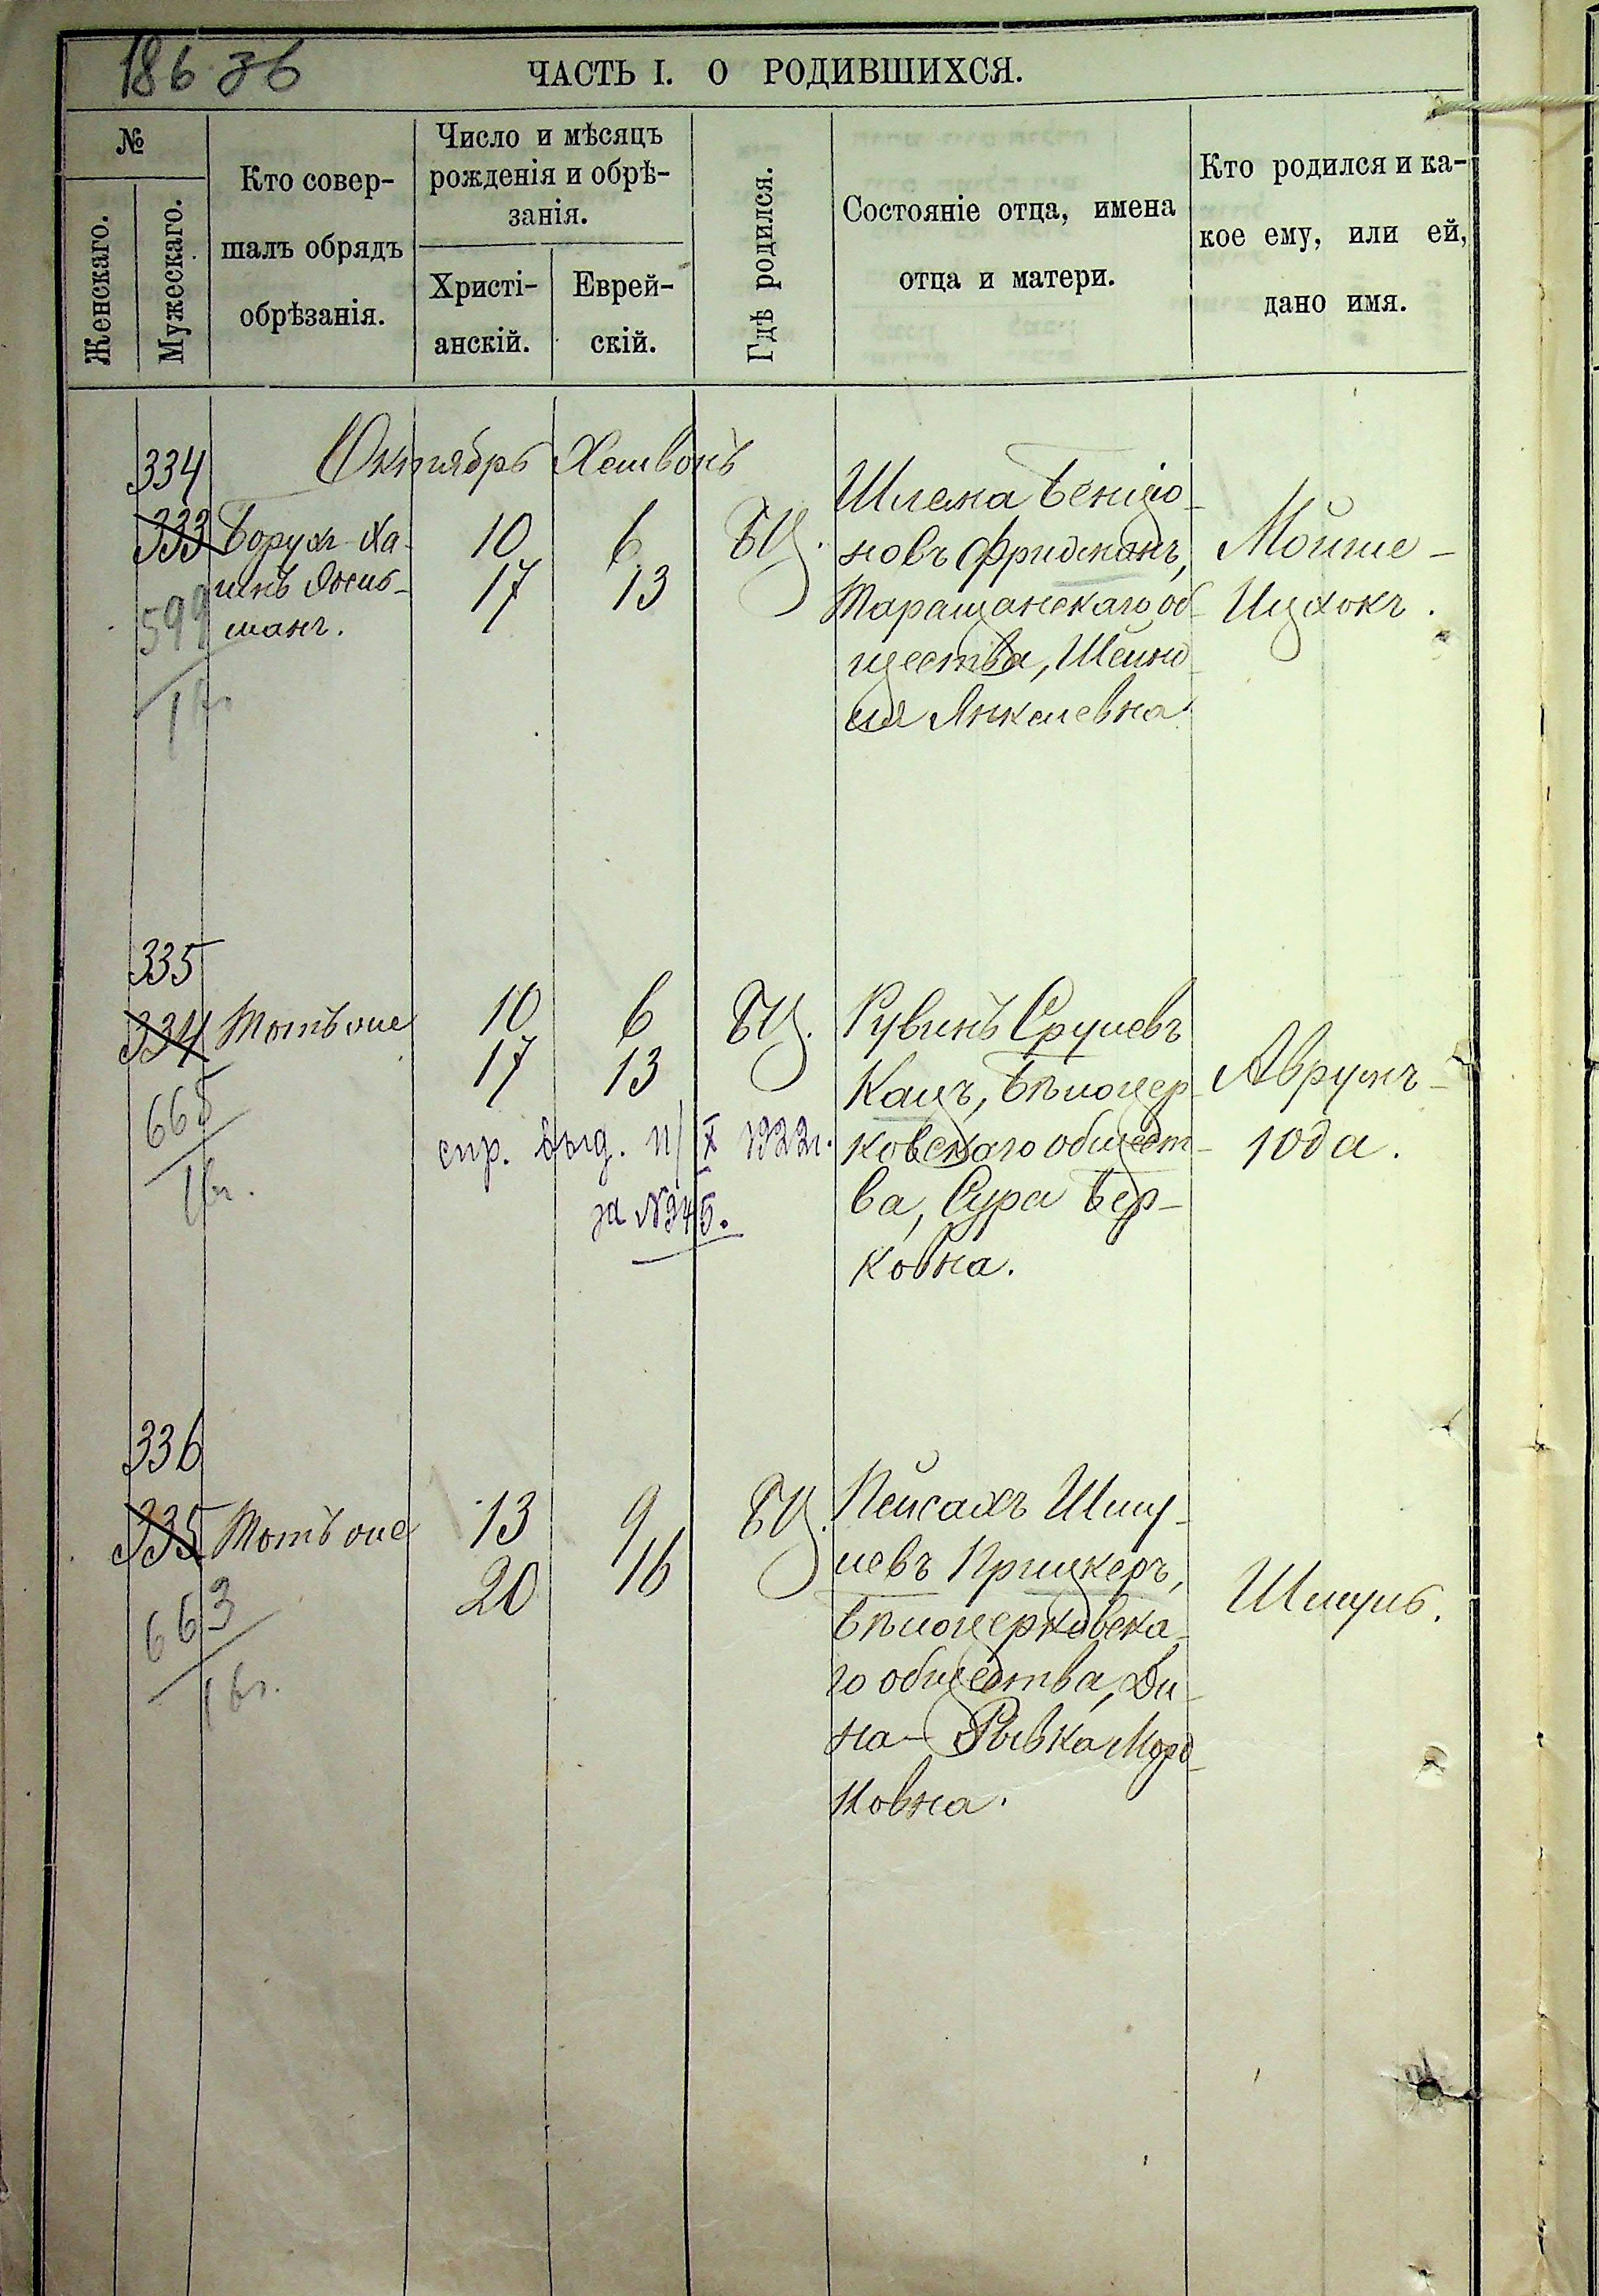 186 зв
ЧАСТЬ I. О РОДИВШИХСЯ.
№
Женскаго.
Мужескаго.
Кто совер-
шалъ обрядъ
обрѣзанія.
Число и мѣсяцъ
рожденія и обрѣ-
занія.
Христі-
анскій.
Еврей-
скій.
Гдѣ родился.
Состояніе отца, имена
отца и матери.
Кто родился и ка-
кое ему, или ей,
дано имя.
Октябрь Хешвонъ
334
333
599
Борухъ Ха-
манъ.
10
17
6
13
БЦ.
Шлема Бенціо-
новъ Фридманъ,
Таращанскаго об-
щества, Шейнд
ля Янкелевна
Мойше-
Ицхокъ.
335
334
665
Тотъ же
10
17
6
13
БЦ.
спр. выд. 11/X 1922г.
за №345.
Рувинъ Срулевъ
Кацъ, Бѣлоцер
ковскаго общест-
ва, Сура Бер-
ковна.
Аврумъ-
Юда.
336
335
663
Тотъ же
13
20
9
16
БЦ.
Пейсахъ Шму-
левъ Прицкеръ,
Бѣлоцерковска-
го общества, Ди-
на-Рывка Морд-
ковна.
Шмуль.